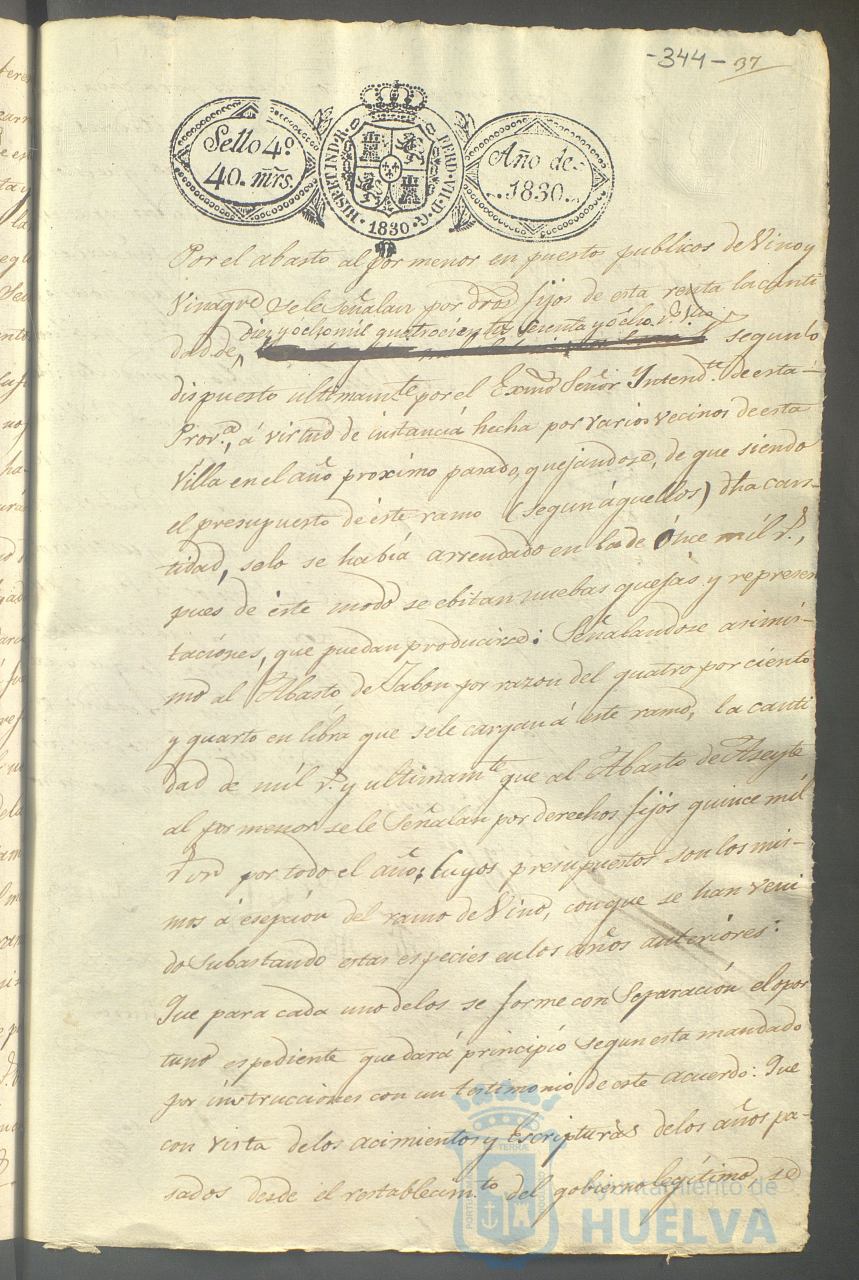 -344- 37
Sello 4º
40. mrs.
HISP. ET IND. R. FERD. VII. D. G.
1830
Año de
1830.
Por el abasto al por menor en puestos publicos de Vino y
Vinagre se le señalan por dros fijos de esta renta la canti
diez y ocho mil quatrocientos setenta y ocho rs. Vn
dad de segun lo
dispuesto ultimamte. por el Exmo Señor Yntendte. de esta
Prova., á virtud de instancia hecha por varios vecinos de esta
Villa en el año proximo pasado, quejandose, de que siendo
el presupuesto de éste ramo (segun áquellos) dha can-
tidad, solo se habia arrendado en la de Once mil rs.,
pues de éste modo se ebitan nuebas quejas y represen
taciones, que puedan producirse: Señalandose asimis-
mo al Abasto de Jabon por razon del quatro por ciento
y quarto en libra que se le cargan á éste ramo, la canti
dad de mil rs. y ultimamte. que al Abasto de Aseyte
al por menor se le Señalan por derechos fijos quince mil
rs. vn por todo el año; Cuyos presupuestos son los mis-
mos á esepción del ramo de Vino, con que se han veni
do Subastando estas especies en los años anteriores:
Que para cada uno de los se forme con Separación el opor
tuno espediente que dará principio segun esta mandado
por instrucciones con un testimonio de este acuerdo: Que
con vista de los acimientos y Escripturas de los años pa-
sados desde el restablecimto. del gobierno legitimo, se
Ayuntamiento de
HUELVA